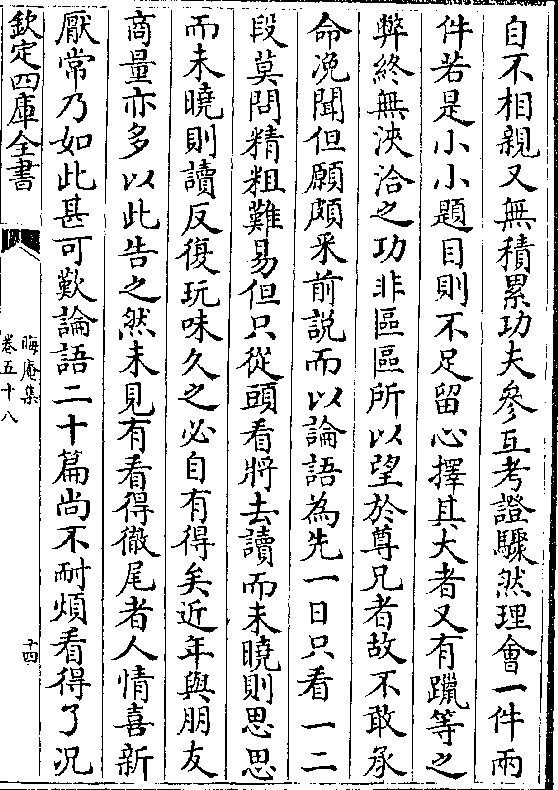 自不相親又無積累功夫參互考證驟然理會一件兩
件若是小小題目則不足留心擇其大者又有躐等之
弊終無浹洽之功非區區所以望於尊兄者故不敢承
命凂聞但願頗采前説而以論語為先一日只看一二
段莫問精粗難易但只從頭看將去讀而未曉則思思
而未曉則讀反復玩味久之必自有得矣近年與朋友
商量亦多以此告之然未見有看得徹尾者人情喜新
厭常乃如此甚可歎論語二十篇尚不耐煩看得了況
欽定四庫全書
晦庵集
卷五十八
十四